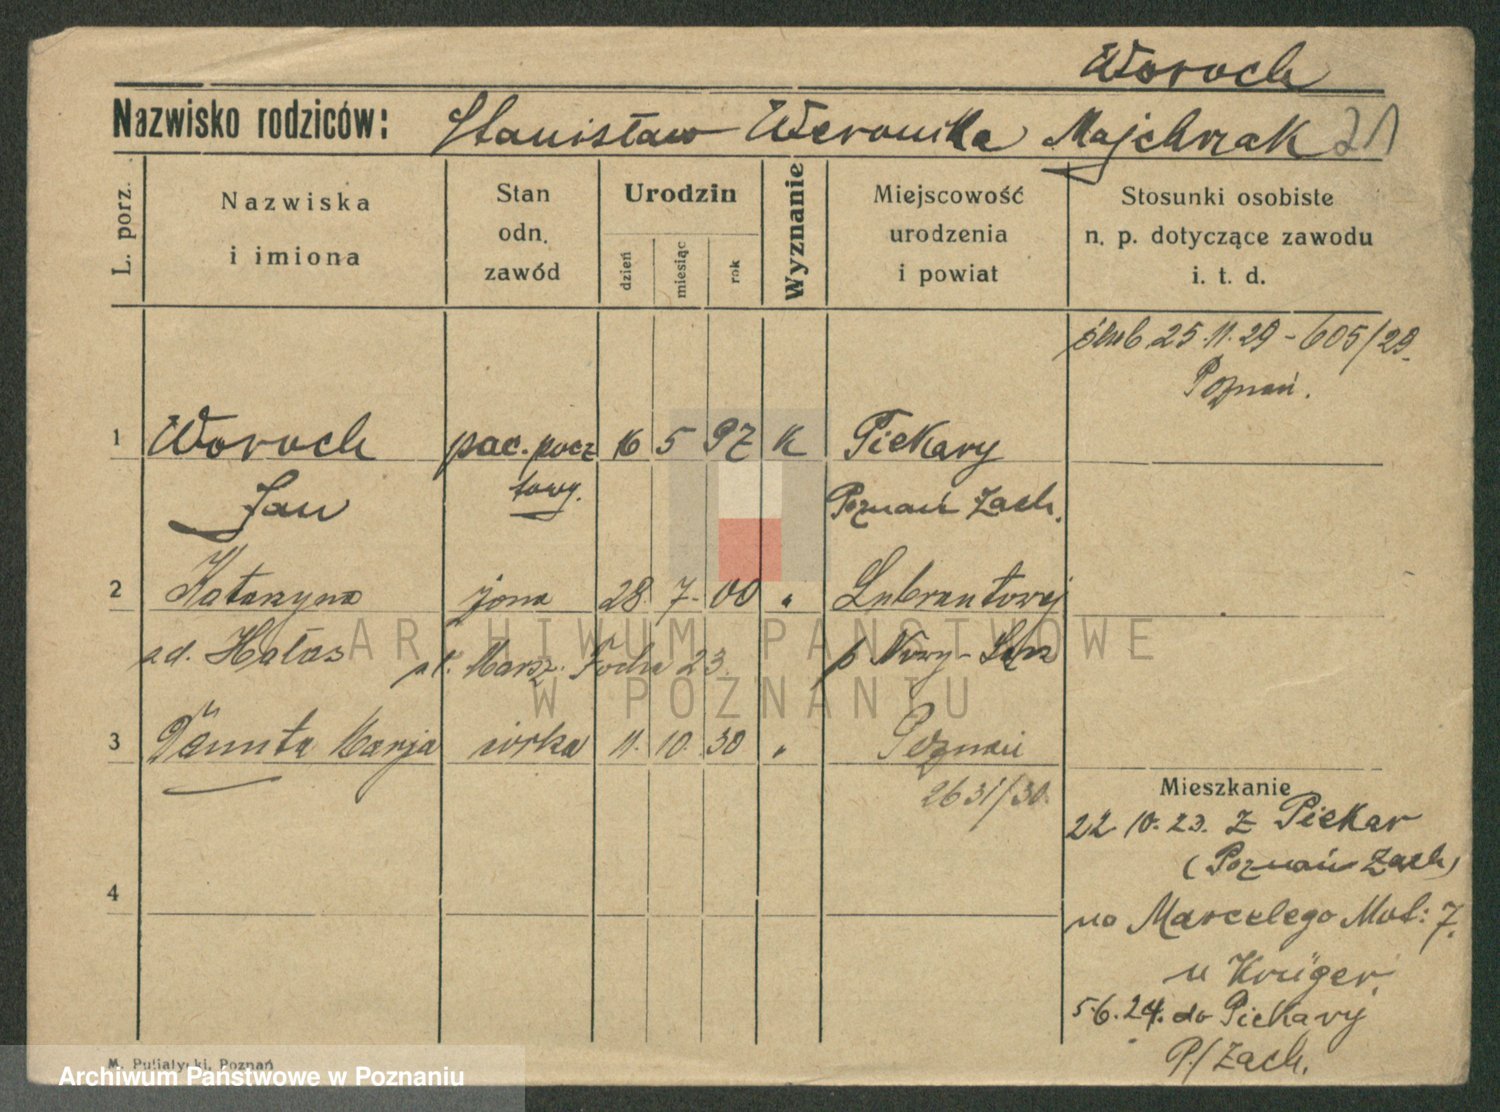 Woroch
Nazwisko rodziców: Stanisław Weronika Majchrzak 21
L. porz.
Nazwiska
i imiona
Stan
odn.
zawód
Urodzin
dzień
miesiąc
rok
Wyznanie
Miejscowość
urodzenia
i powiat
Stosunki osobiste
n. p. dotyczące zawodu
i. t. d.
ślub 25.11.29 - 605/29.
Poznań.
1 Woroch pac. pocz 16 5 97 K Piekary
Jan towy. Poznań Zach.
2 Katarzyna żona 28. 7. 00 „
zd. Hałas Marsz. Focha 23
p Nowy-
3 Danuta Marja córka 11. 10. 30 „ Poznań
2631/30.
Mieszkanie
22 10. 23. z Piekar
(Poznań Zach)
4
na Marcelego Mot: 7.
u Krüger.
5.6.24. do Piekary
P/Zach.
ARCHIWUM PAŃSTWOWE
W POZNANIU
M. Putiatycki, Poznań
Archiwum Państwowe w Poznaniu